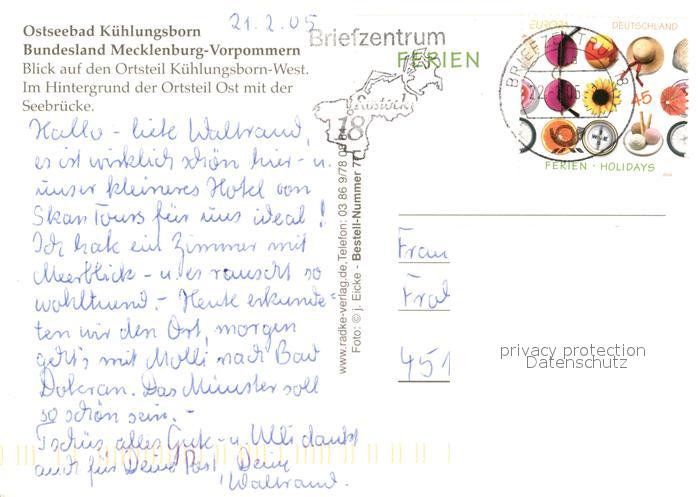 21.2.05
Ostseebad Kühlungsborn
Bundesland Mecklenburg-Vorpommern
Blick auf den Ortsteil Kühlungsborn-West.
Im Hintergrund der Ortsteil Ost mit der
Seebrücke.
Hallo - liebe Waltraud,
es ist wirklich schön hier - u.
unser kleineres Hotel von
SkanTours für uns ideal!
Ich hab ein Zimmer mit
Meerblick - u. es rauscht so
wohltuend. - Heute erkunde-
ten wir den Ort, morgen
geht's mit Molli nach Bad
Doberan. Das Münster soll
so schön sein. -
Tschüs, alles Gute - u. Ulli dankt
auch für Deine Post, Deine
Waltraud.
Briefzentrum
18
Rostock
www.radke-verlag.de, Telefon: 03 86 9/78 09
Foto: © J. Eicke - Bestell-Nummer 7
EUROPA DEUTSCHLAND
FERIEN
45
FERIEN · HOLIDAYS
BRIEFZENTRUM
Frau
451
privacy protection
Datenschutz